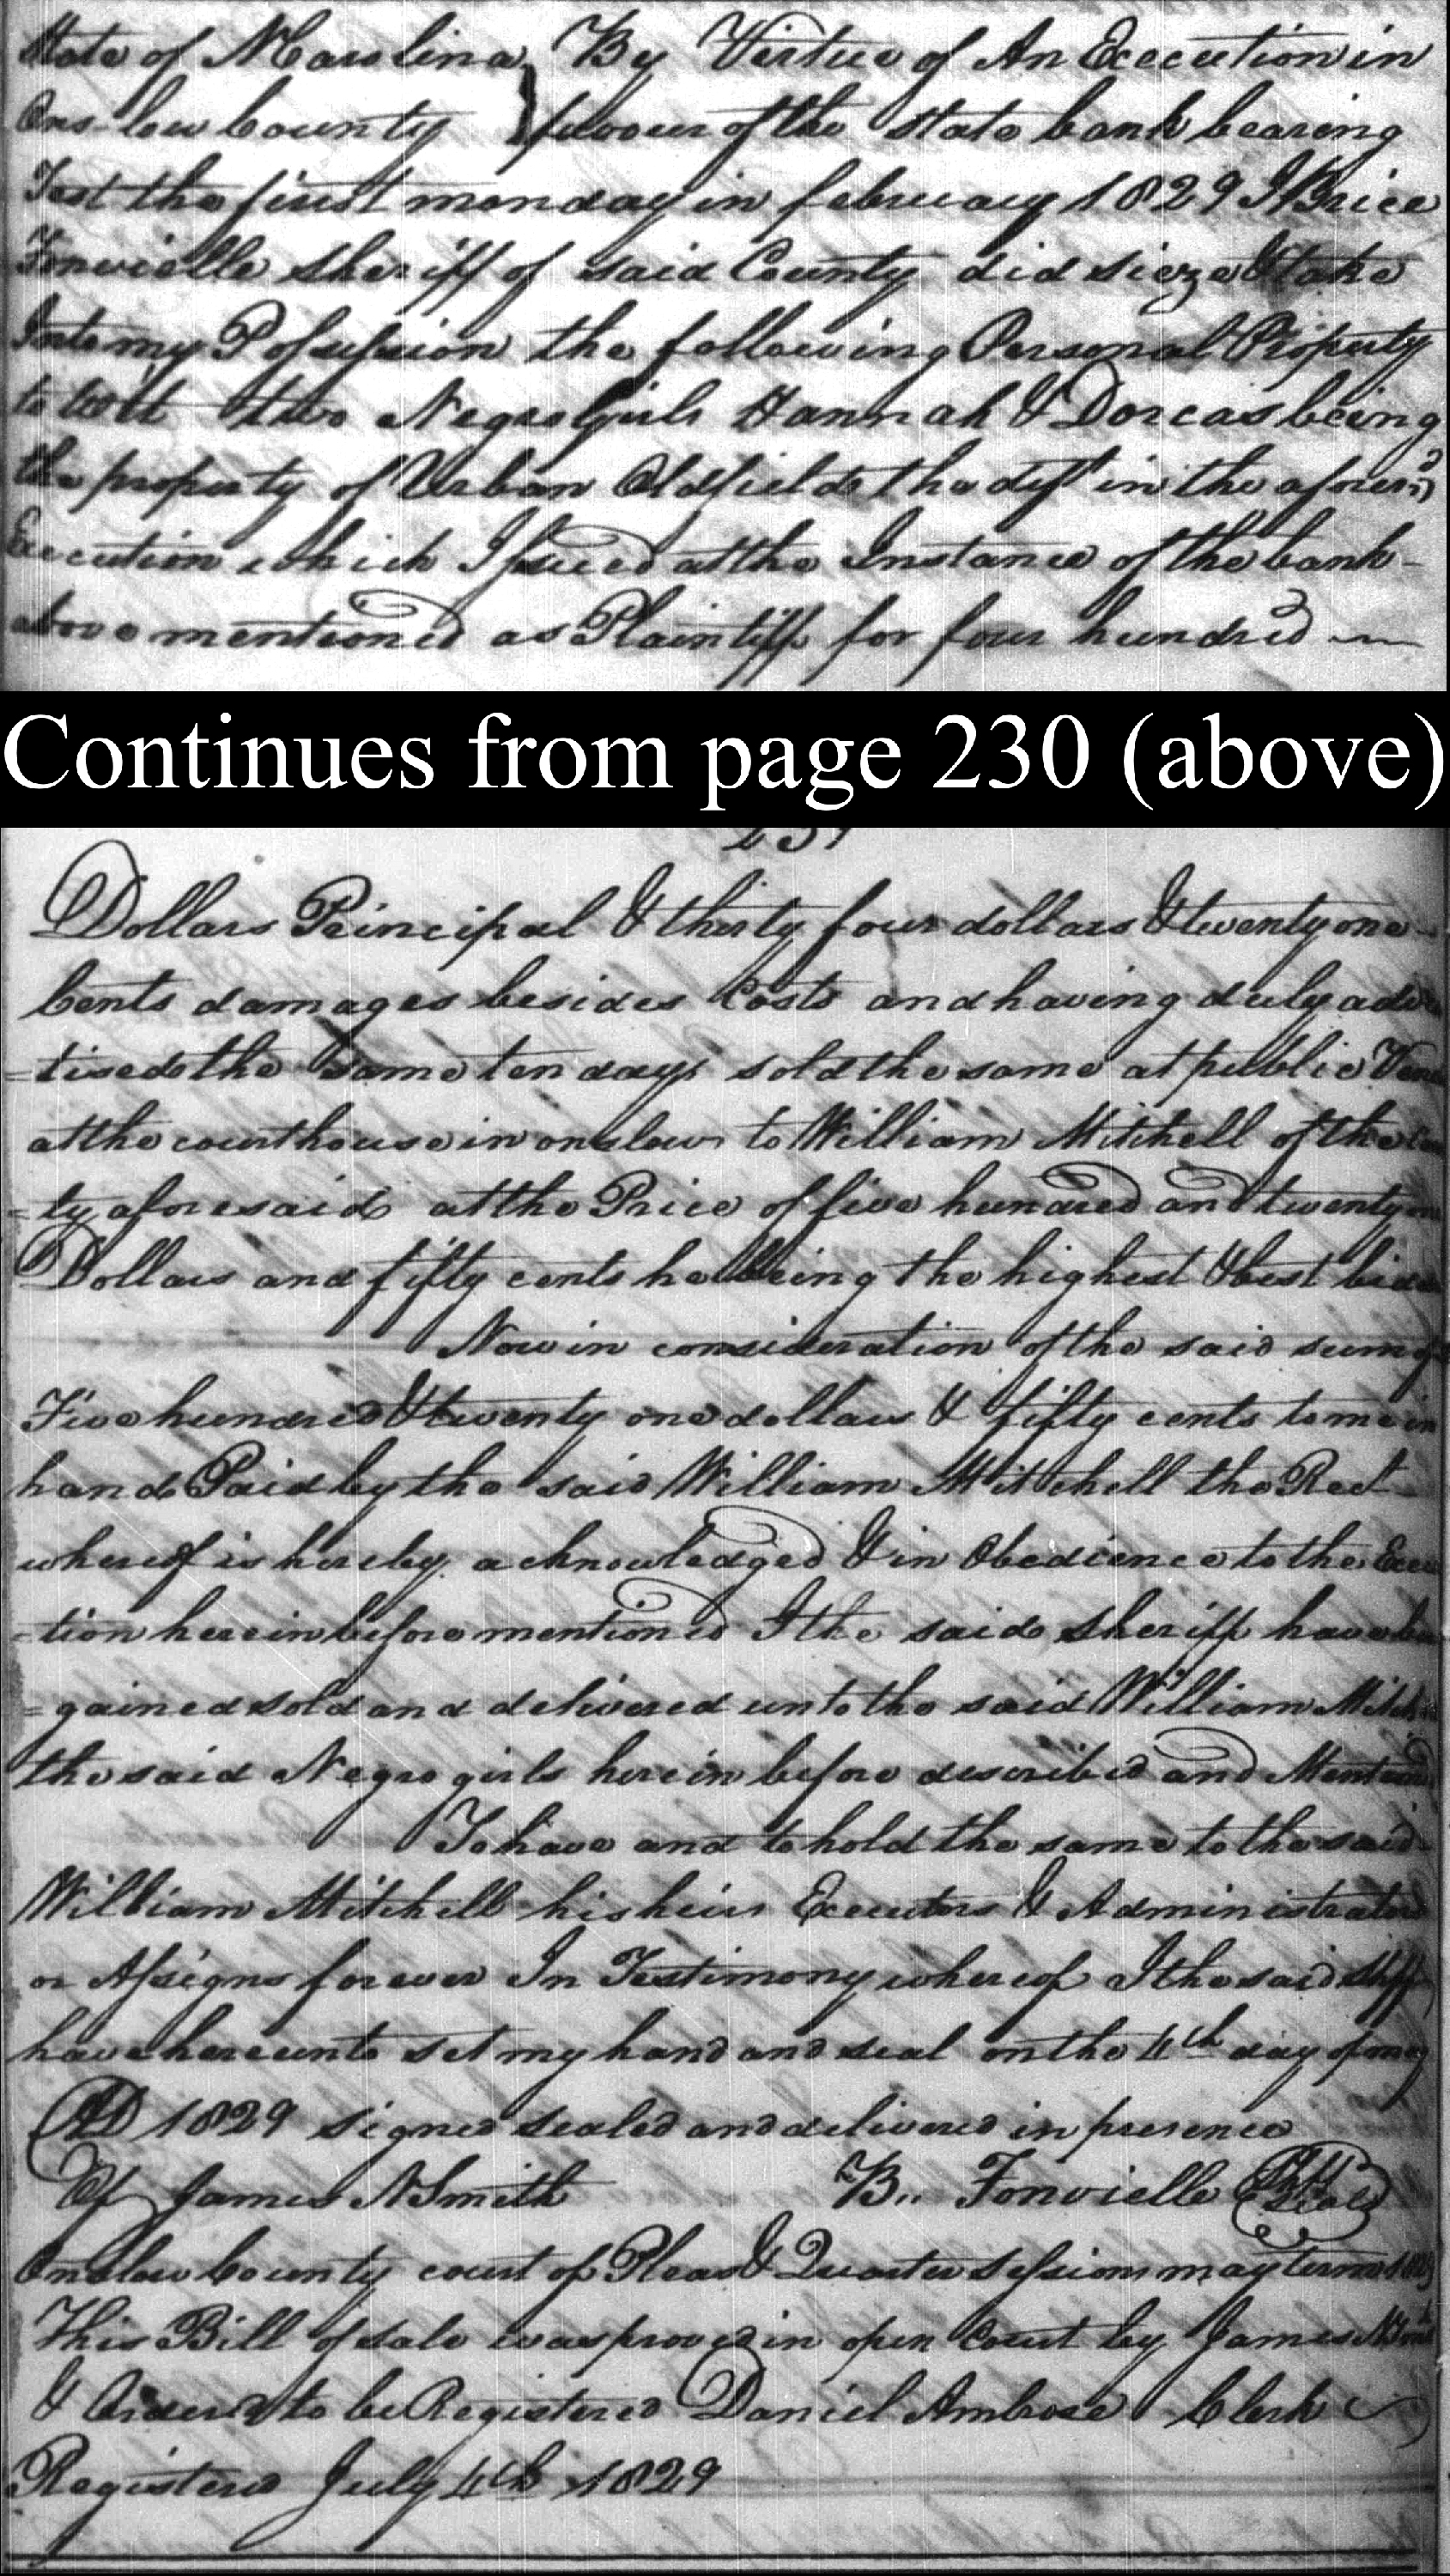 State of N Carolina } By Virtue of An Execution in
Ons-low County } favour of the State bank bearing
Test the first monday in february 1829 I Brice
Fonvielle sheriff of said County did sieze & take
Into my Possession the following Personal Property
to wit two Negro Girls Hannah & Dorcas being
the property of Urban Oldfields the deft in the aforesd
Execution which Issued at the Instance of the bank -
above mentioned as Plaintiff for four hundred
Continues from page 230 (above)
231
Dollars Principal & thirty four dollars & twenty one
Cents damages besides Costs and having duly adv
=tised the same ten days sold the same at public
at the courthouse in onslow to William Mitchell of the
=ty aforesaid at the Price of five hundred and twenty
Dollars and fifty cents he being the highest & best
Now in consideration of the said sum of
Five hundred & twenty one dollars & fifty cents to me in
hand Paid by the said William Mitchell the Rect
whereof is hereby acknowledged & in Obedience to the Execu
=tion herein before mentioned I the said sheriff have
=gained sold and delivered unto the said William
the said Negro girls herein before described and
To have and to hold the same to the said
William Mitchell his heirs Executors & Administrators
or Assigns forever In Testimony whereof I the said Shff
have hereunto set my hand and seal on the 4th day of may
AD 1829 signed sealed and delivered in presence
Of James N Smith B,, Fonvielle Shff Seal
Onslow County court of Pleas & Quarter Sessions may term 1829
This Bill of sale was proved in open Court by James N
& Ordered to be Registered Daniel Ambrose Clerk
Registered July 4th 1829